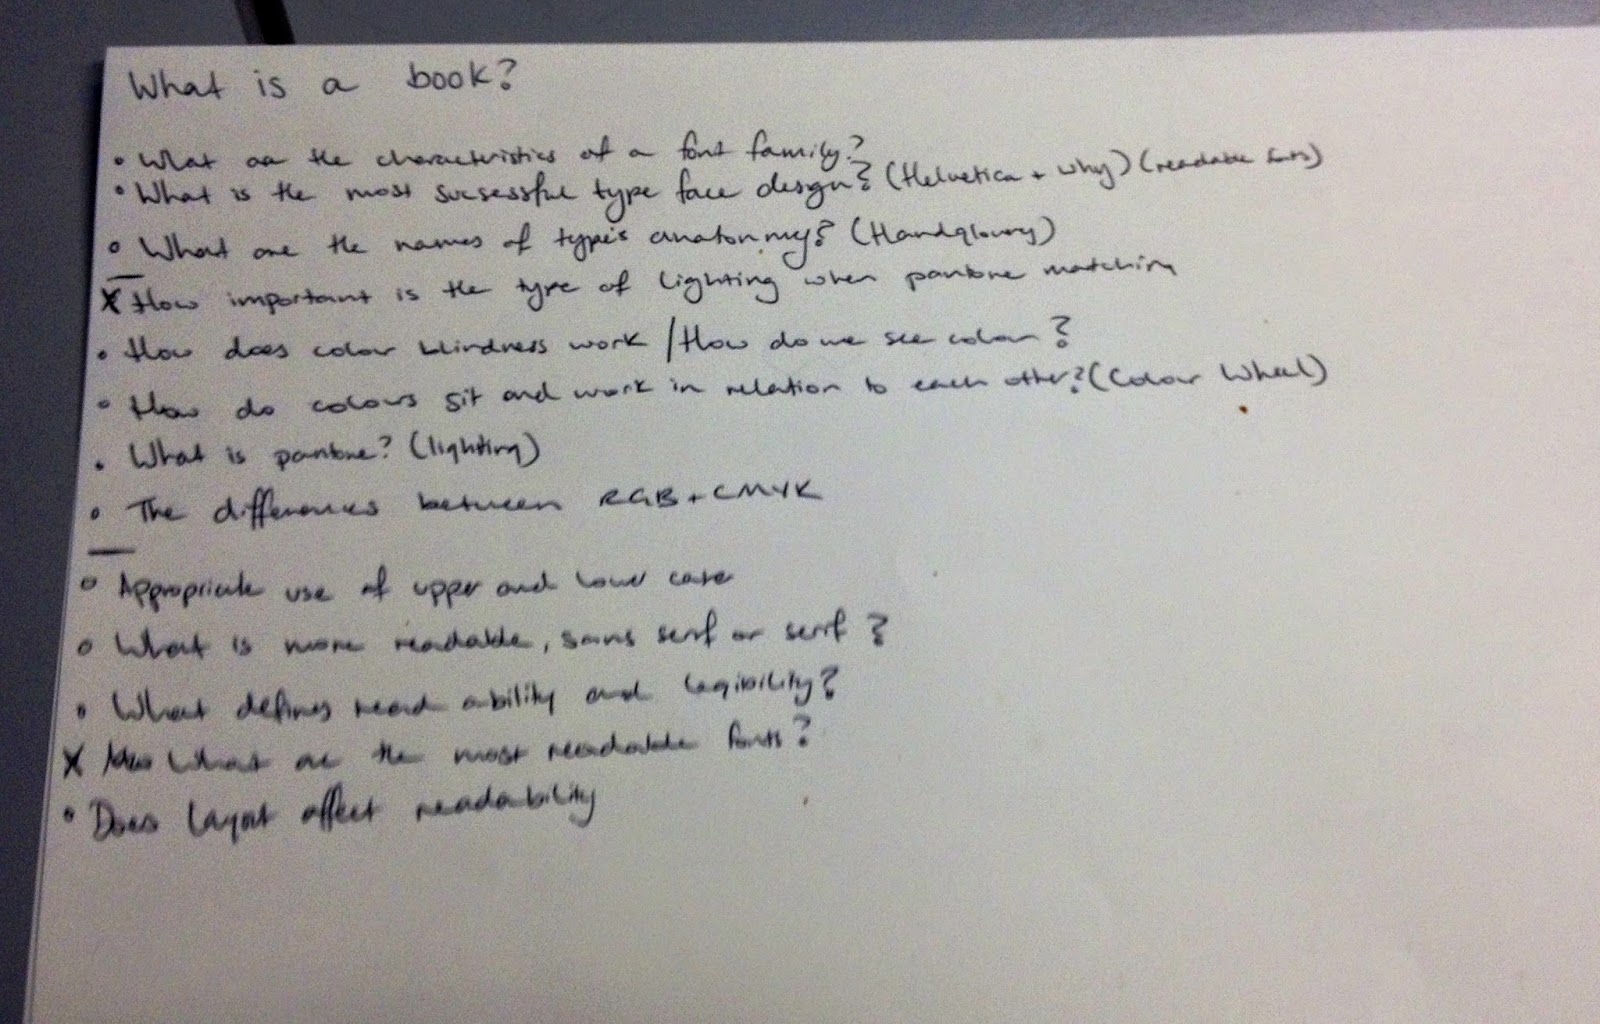 What is a book?
• What are the characteristics of a font family?
• What is the most sucsessful type face design? (Helvetica + why) (readable fonts)
• What are the names of type's anatommy? (Handgloury)
X How important is the type of lighting when pantone matching
• How does color blindness work / How do we see colour?
• How do colours sit and work in relation to each other? (Colour Wheel)
• What is pantone? (lighting)
• The differences between RGB + CMYK
• Appropriate use of upper and lower case
• What is more readable, sans serif or serif?
• What defines read ability and legibility?
X What are the most readable fonts?
• Does layout affect readability